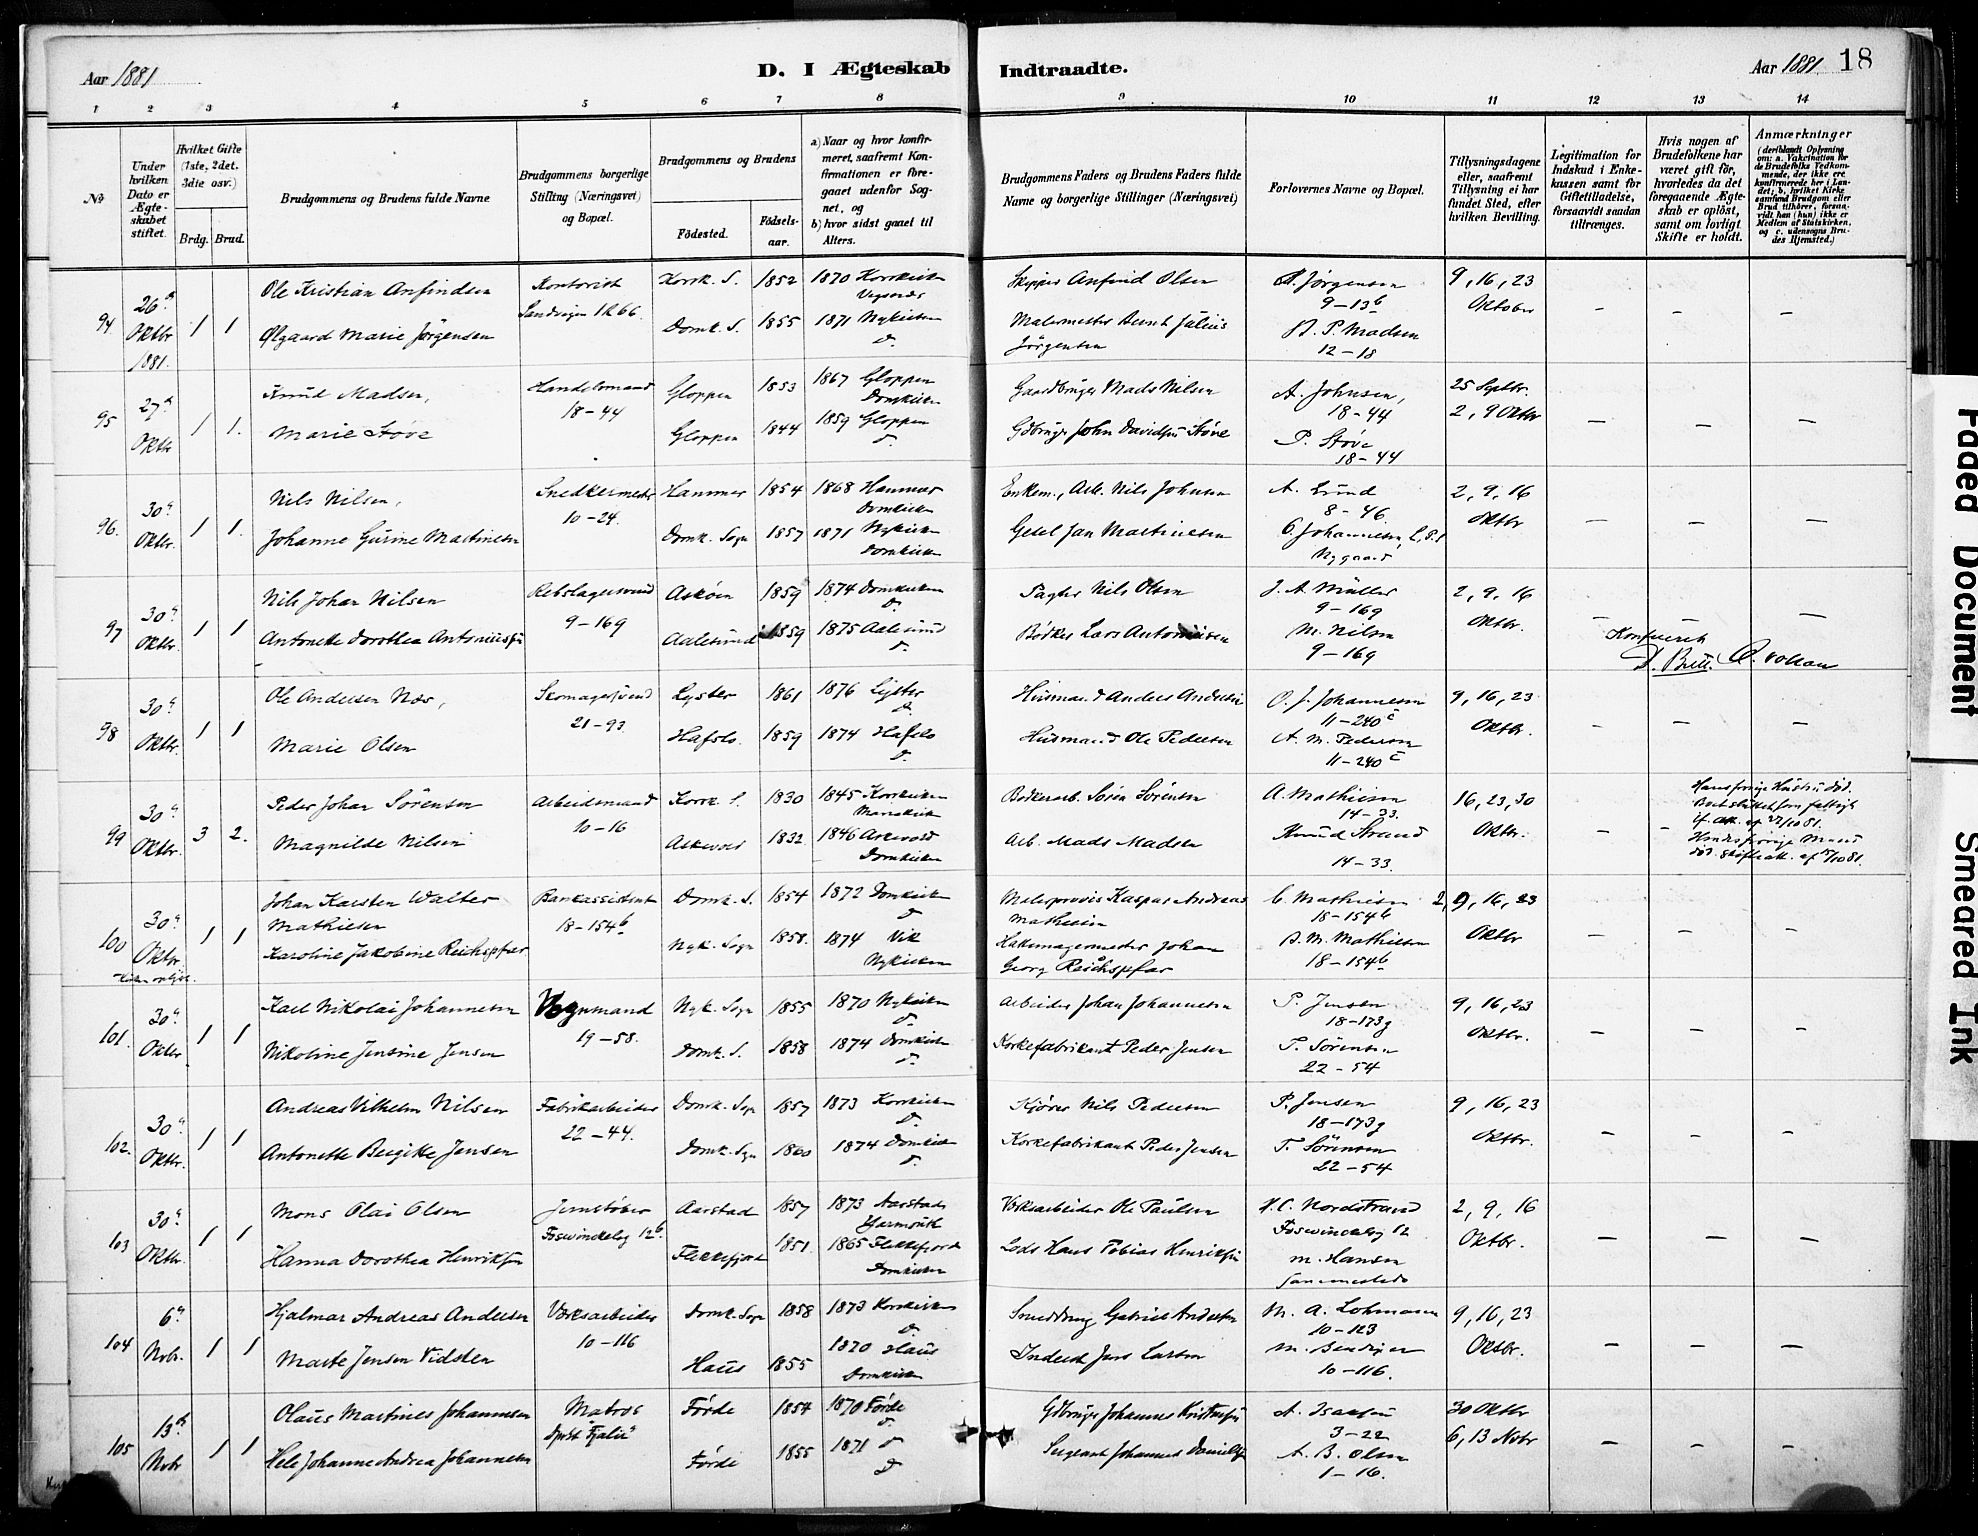 Aar 1881
D. I Ægteskab
Indtraadte.
Aar 1881. 18
1 2 3 4 5 6 7 8 9 10 11 12 13 14
No
Under hvilken Dato er Ægteskabet stiftet.
Hvilket Gifte (1ste, 2det. 3die osv.)
Brdg. Brud.
Brudgommens og Brudens fulde Navne
Brudgommens borgerlige Stilling (Næringsvei) og Bopæl.
Brudgommens og Brudens
Fødested.
Fødselsaar.
a) Naar og hvor konfirmeret, saafremt Konfirmationen er foregaaet udenfor Sognet, og
b) hvor sidst gaaet til Alters.
Brudgommens Faders og Brudens Faders fulde Navne og borgerlige Stillinger (Næringsvei)
Forlovernes Navne og Bopæl.
Tillysningsdagene eller, saafremt Tillysning ei har fundet Sted, efter hvilken Bevilling.
Legitimation for Indskud i Enkekassen samt for Giftetilladelse, forsaavidt saadan tiltrænges.
Hvis nogen af Brudefolkene har været gift før, hvorledes da det foregaaende Ægteskab er opløst, samt om lovligt Skifte er holdt.
Anmærkninger
94 26 Oktbr 1881. 1 1
Ole Kristian Anfindsen Kontorist Korsk. S. 1852 1870 Korskirken
Skipper Anfind Olsen
Jørgensen 9, 16, 23
Sandvigen
9-13b Oktober
Ølgaard Marie Jørgensen Domk. S. 1855 1871 Nykirken
Malermester Bernt Julius Jørgensen
P. Madsen
12-18
95 27 Oktbr 1 1.
Knud Madsen, Handelsmand Gloppen 1853 1867 Gloppen Domkirken
18-44
Gaardbruger Mads Nilsen
A. Johnsen, 18-44
25 Septbr. 2, 9 Oktbr
Marie Støve Gloppen 1844 1859 Gloppen
Gdbruger John Davidsen Støve
P. Støve 18-44
96. 30 Oktbr. 1 1.
Nils Nilsen, Snedkermester Hammer 1854 1868 Hammer Domkirken
10-24.
Enkem., Arb. Nils Johnsen
A. Lund 8-46
2, 9, 16 Oktbr
Johanne Gurine Martinsen Domk. Sogn 1857 1871 Nykirken Domkirken
Gesel Jan Martinsen
Johannesen,
Nygaard
97 30 Oktbr. 1 1
Nils Johan Nilsen Rebslagersvend Askøen 1859 1874 Domkirken
9-169
Nils Olsen
J. A. Müller 9-169
2, 9, 16 Oktbr.
Antonette Dorothea Antoniussen Aalesund 1859 1875 Aalesund
Bødker Lars Antoniussen
M. Nilsen 9-169
Konfererer
98 30 Oktbr. 1 1
Ole Andersen Næs, Skomagersvend Lyster 1861 1876 Lyster
21-93.
Husmand Anders Andersen
O. J. Johannesen 11-240c
9, 16, 23 Oktbr.
Marie Olsen Hafslo. 1859 1874 Hafslo
Husmand Ole Pedersen
A. M. Pedersen 11-240c
99 30 Oktbr. 3 2.
Peder Johan Sørensen Arbeidsmand Korsk. S. 1830 1845 Korskirken Mariekirken
10-16
Bødkerarb. Søren Sørensen
A. Mathiesen 14-33.
16, 23, 30 Oktbr.
Hans forrige Hustru død.
Magnilde Nilsen Askevold 1832 1846 Askevold Domkirken
Arb. Mads Madsen
Knud Strand 14-33.
Hendes forrige Mand død.
100 30 Oktbr. 1 1
Johan Karsten Walter Mathiesen Bankassistent Domk. S. 1854 1872 Domkirken
18-154b
Kaspar Andreas Mathiesen
C. Mathiesen 18-154b
2, 9, 16, 23 Oktbr
Karoline Jakobine Reichspfar Nyk. Sogn 1858. 1874 Vik Nykirken
Johan Georg Reichspfar
B. M. Mathiesen 18-154b
101. 30 Oktbr. 1 1
Karl Nikolai Johannesen Vognmand Nyk. Sogn 1855 1870 Nykirken
19-58.
Arbeider Johan Johannesen
P. Jensen 18-173g
9, 16, 23 Oktbr.
Nikoline Jensine Jensen Domk. S. 1858 1874 Domkirken
Korkefabrikant Peder Jensen
T. Sørensen 22-54
102. 30 Oktbr. 1 1
Andreas Vilhelm Nilsen Fabrikarbeider Domk. Sogn 1857 1873 Korskirken
22-44.
Kjører Nils Pedersen
P. Jensen 18-173g
9, 16, 23 Oktbr.
Antonette Bergitte Jensen Domk. Sgn 1860 1874 Domkirken
Korkefabrikant Peder Jensen
T. Sørensen 22-54
103 30 Oktbr. 1 1
Mons Olai Olsen Jernstøber Aarstad 1857 1873 Aarstad
Foswindelsg 12b
Værksarbeider Ole Paulsen
Nordstrand
Foswindelsg 12
2, 9, 16 Oktbr.
Hanna Dorothea Henriksen Flekkefjord 1851. 1865 Flekkefjord Domkirken
Lods Hans Tobias Henriksen
M. Hansen
sammesteds
104 6 Nvbr. 1 1
Hjalmar Andreas Andersen Værksarbeider Domk. Sogn 1858 1873 Korskirken
10-116
Gabriel Andersen
M. A. Lohmann 10-123
9, 16, 23 Oktbr.
Marte Jensen Vidsten Haus 1855 1870 Haus Domkirken
Inderst Jens Larsen
10-116.
105 13 Nvbr 1 1
Olaus Martines Johannesen Matros Førde 1854 1870 Førde
Gdbruger Johannes Kristensen
A. Isaksen 3-22
30 Oktbr 6, 13 Nvbr
Johanne Andrea Johannesen Førde 1855 1871
Sergeant Johannes Danielsen
A. B. Olsen 1-16.
Faded Document
Smeared Ink